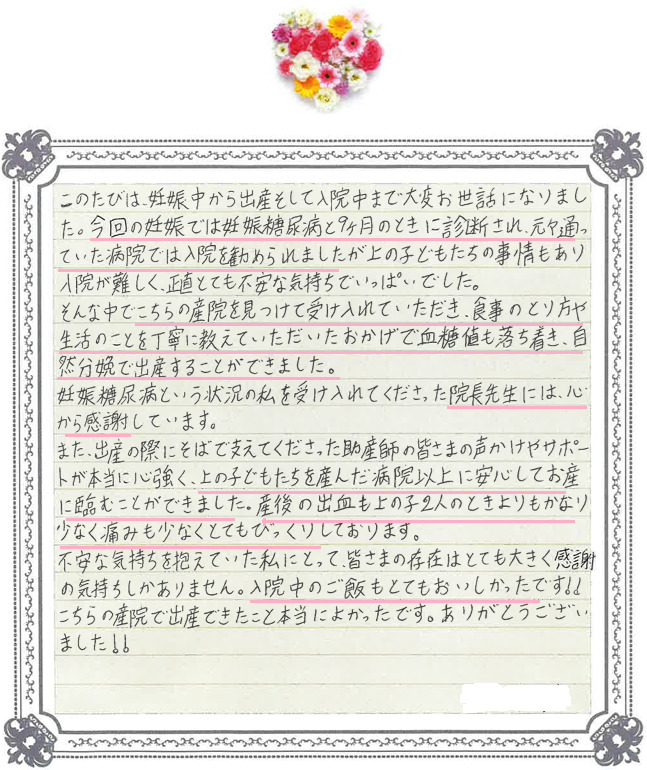 このたびは、妊娠中から出産そして入院中まで大変お世話になりまし
た。今回の妊娠では妊娠糖尿病と9ヶ月のときに診断され、元々通っ
ていた病院では入院を勧められましたが上の子どもたちの事情もあり
入院が難しく、正直とても不安な気持ちでいっぱいでした。
そんな中でこちらの産院を見つけて受け入れていただき、食事のとり方や
生活のことを丁寧に教えていただいたおかげで血糖値も落ち着き、自
然分娩で出産することができました。
妊娠糖尿病という状況の私を受け入れてくださった院長先生には、心
から感謝しています。
また、出産の際にそばで支えてくださった助産師の皆さまの声かけやサポー
トが本当に心強く、上の子どもたちを産んだ病院以上に安心してお産
に臨むことができました。産後の出血も上の子2人のときよりもかなり
少なく痛みも少なくとてもびっくりしております。
不安な気持ちを抱えていた私にとって、皆さまの存在はとても大きく感謝
の気持ちしかありません。入院中のご飯もとてもおいしかったです!!
こちらの産院で出産できたこと本当によかったです。ありがとうござい
ました!!